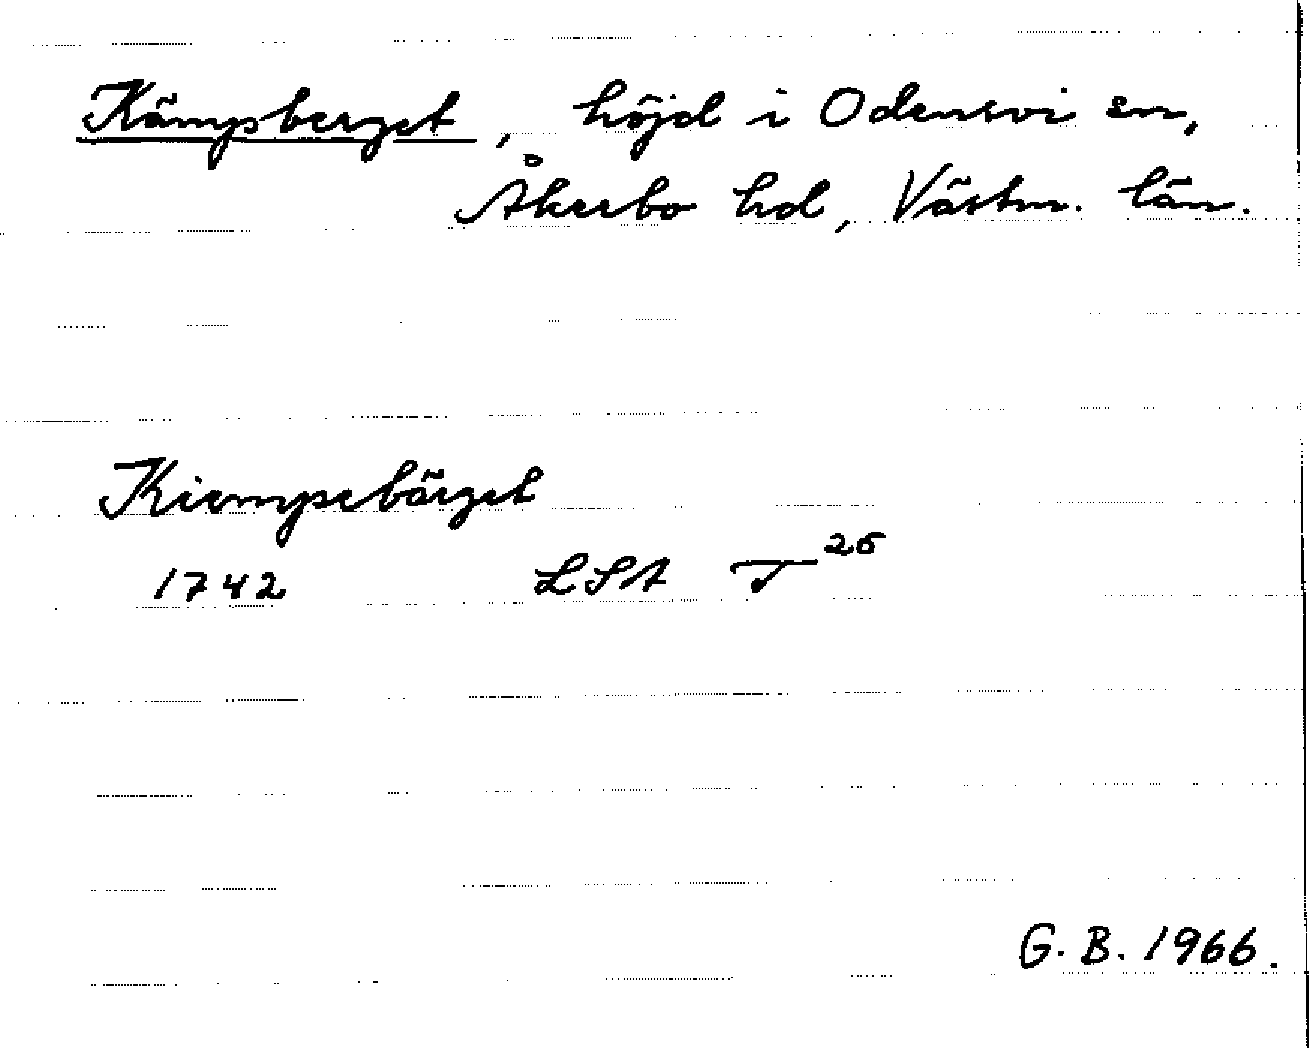 Kämpsberget, höjd i Odensvi sn,
Åkerbo hd, Västm. län.
Kiempebärget
1742 LSA T 26
G. B. 1966.